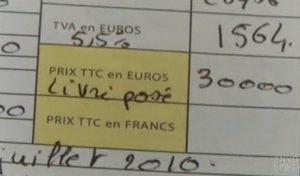 TVA en EUROS
5,5%
1564.
PRIX TTC en EUROS
Livré posé
30000
PRIX TTC en FRANCS
juillet 2010.